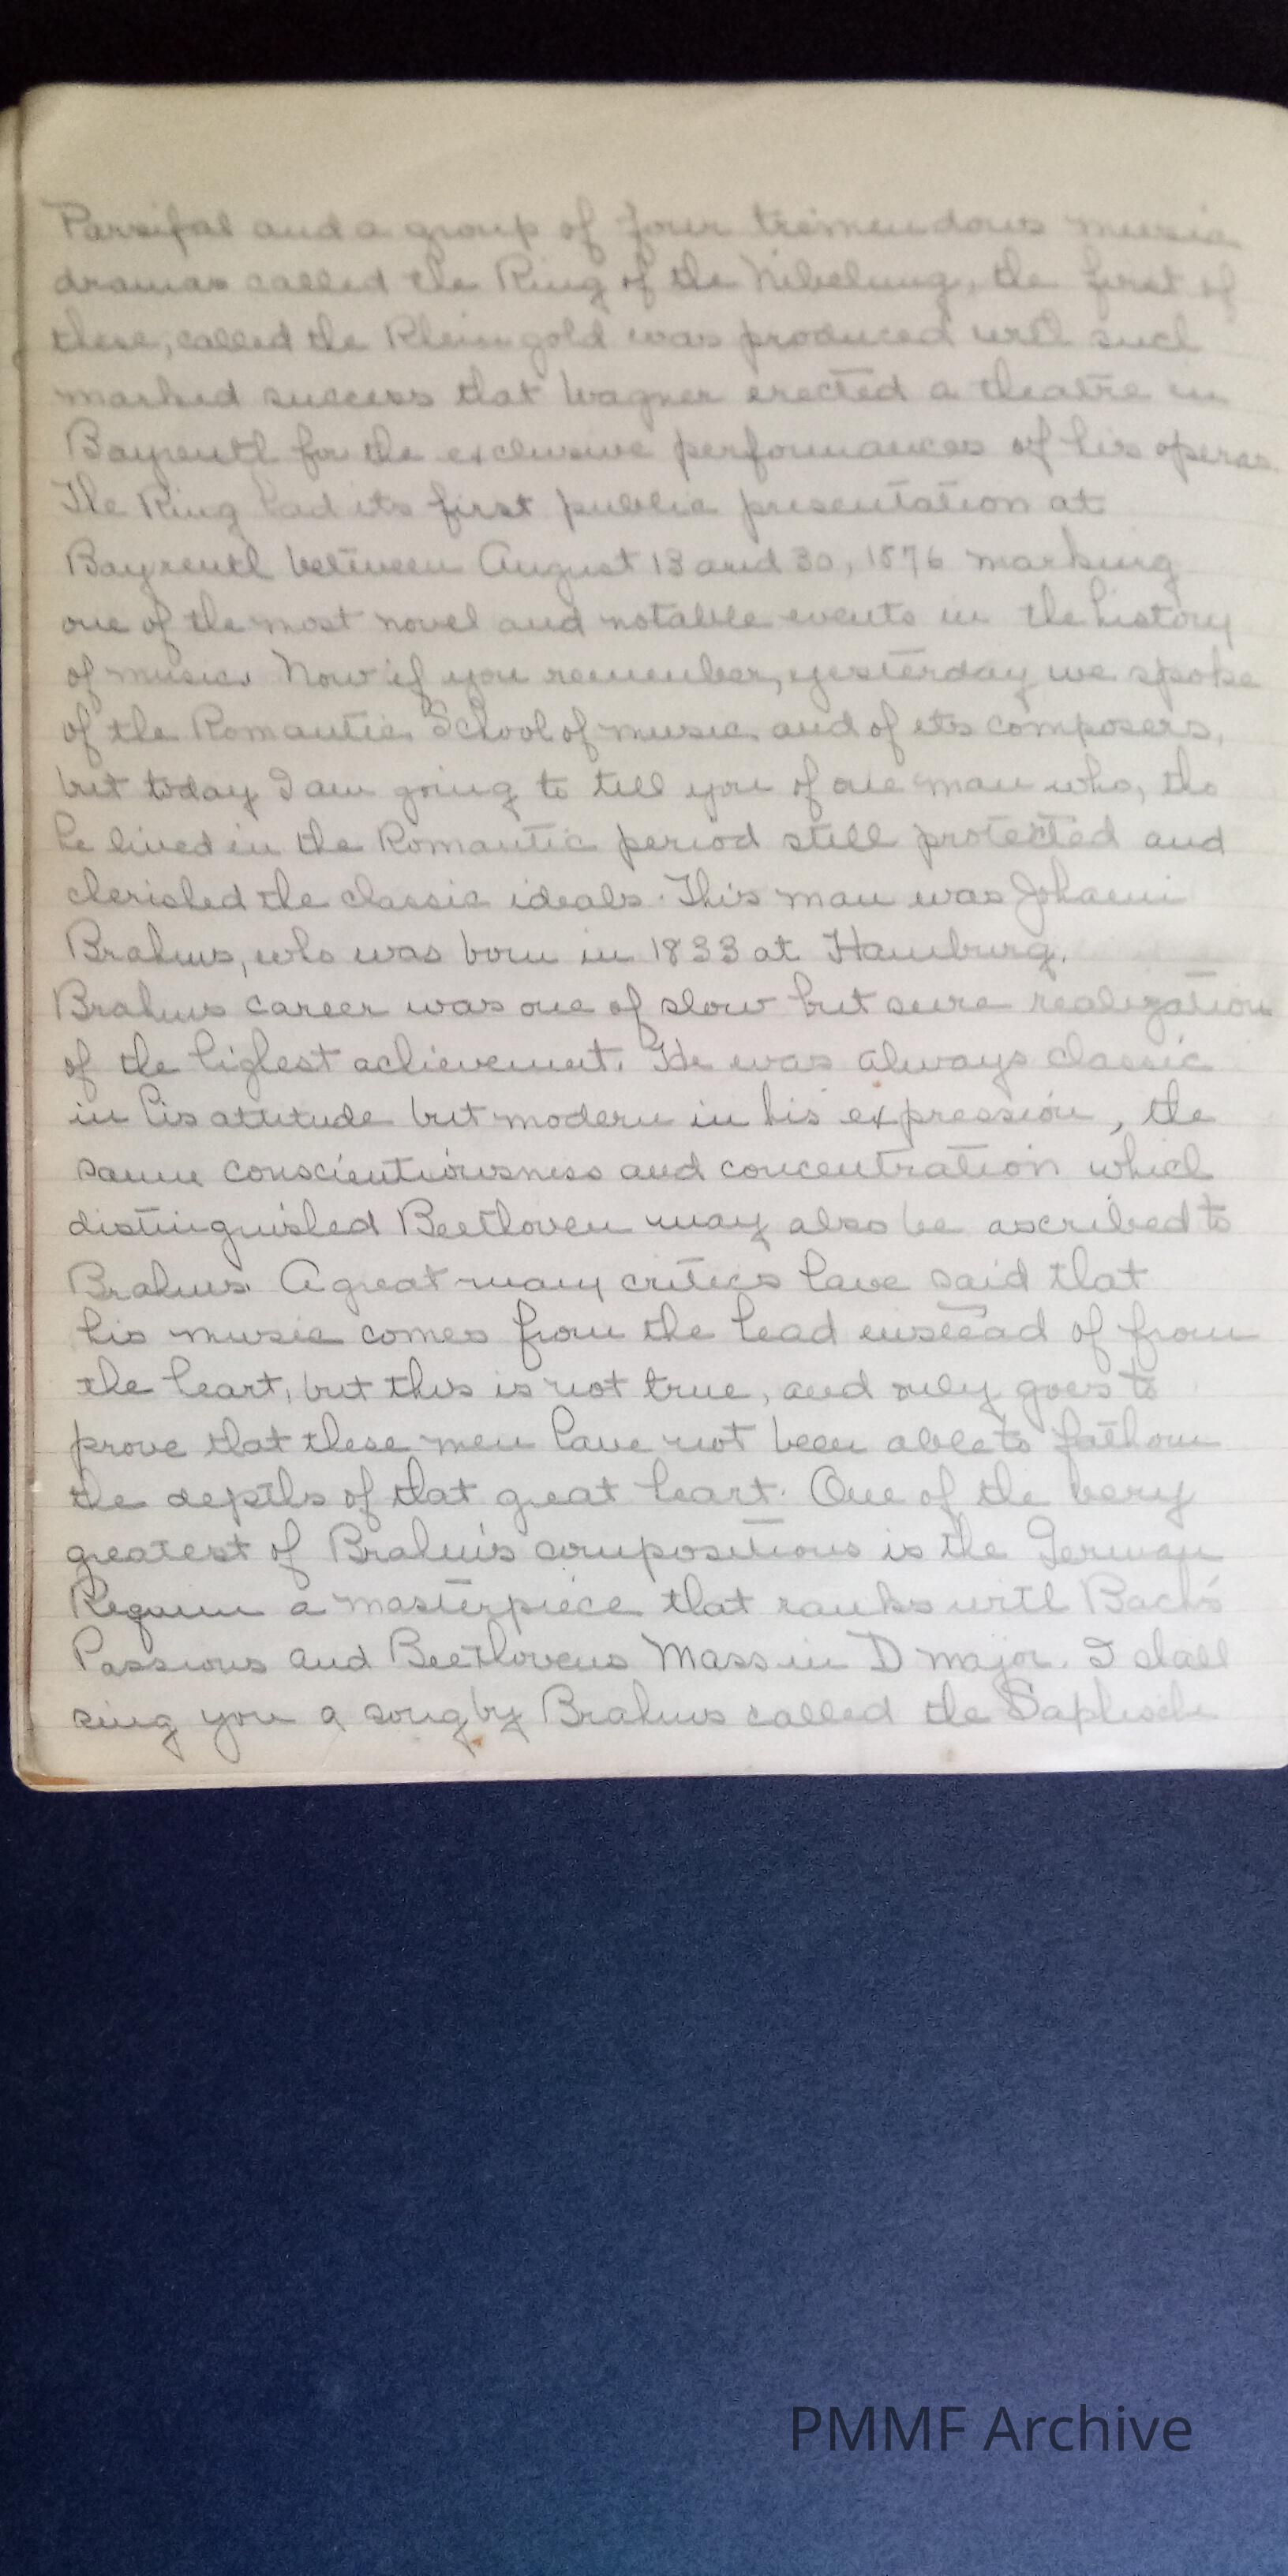 Parsifal and a group of four tremendous music
dramas called the Ring of the Nibelung, the first of
these, called the Rheingold was produced with such
marked success that Wagner erected a theatre in
Bayreuth for the exclusive performances of his operas.
The Ring had its first public presentation at
Bayreuth between August 13 and 30, 1876 marking
one of the most novel and notable events in the history
of music. Now if you remember, yesterday we spoke
of the Romantic School of music and of its composers,
but today I am going to tell you of one man who, tho
he lived in the Romantic period still protected and
cherished the classic ideals. This man was Johann
Brahms, who was born in 1833 at Hamburg.
Brahms career was one of slow but sure realization
of the highest achievement. He was always classic
in his attitude but modern in his expression, the
same conscientiousness and concentration which
distinguished Beethoven may also be ascribed to
Brahms. A great many critics have said that
his music comes from the head instead of from
the heart, but this is not true, and only goes to
prove that these men have not been able to fathom
the depths of that great heart. One of the very
greatest of Brahm's compositions is the German
Requium a masterpiece that ranks with Bach's
Passions and Beethovens Mass in D major. I shall
sing you a song by Brahms called the Saphische
PMMF Archive